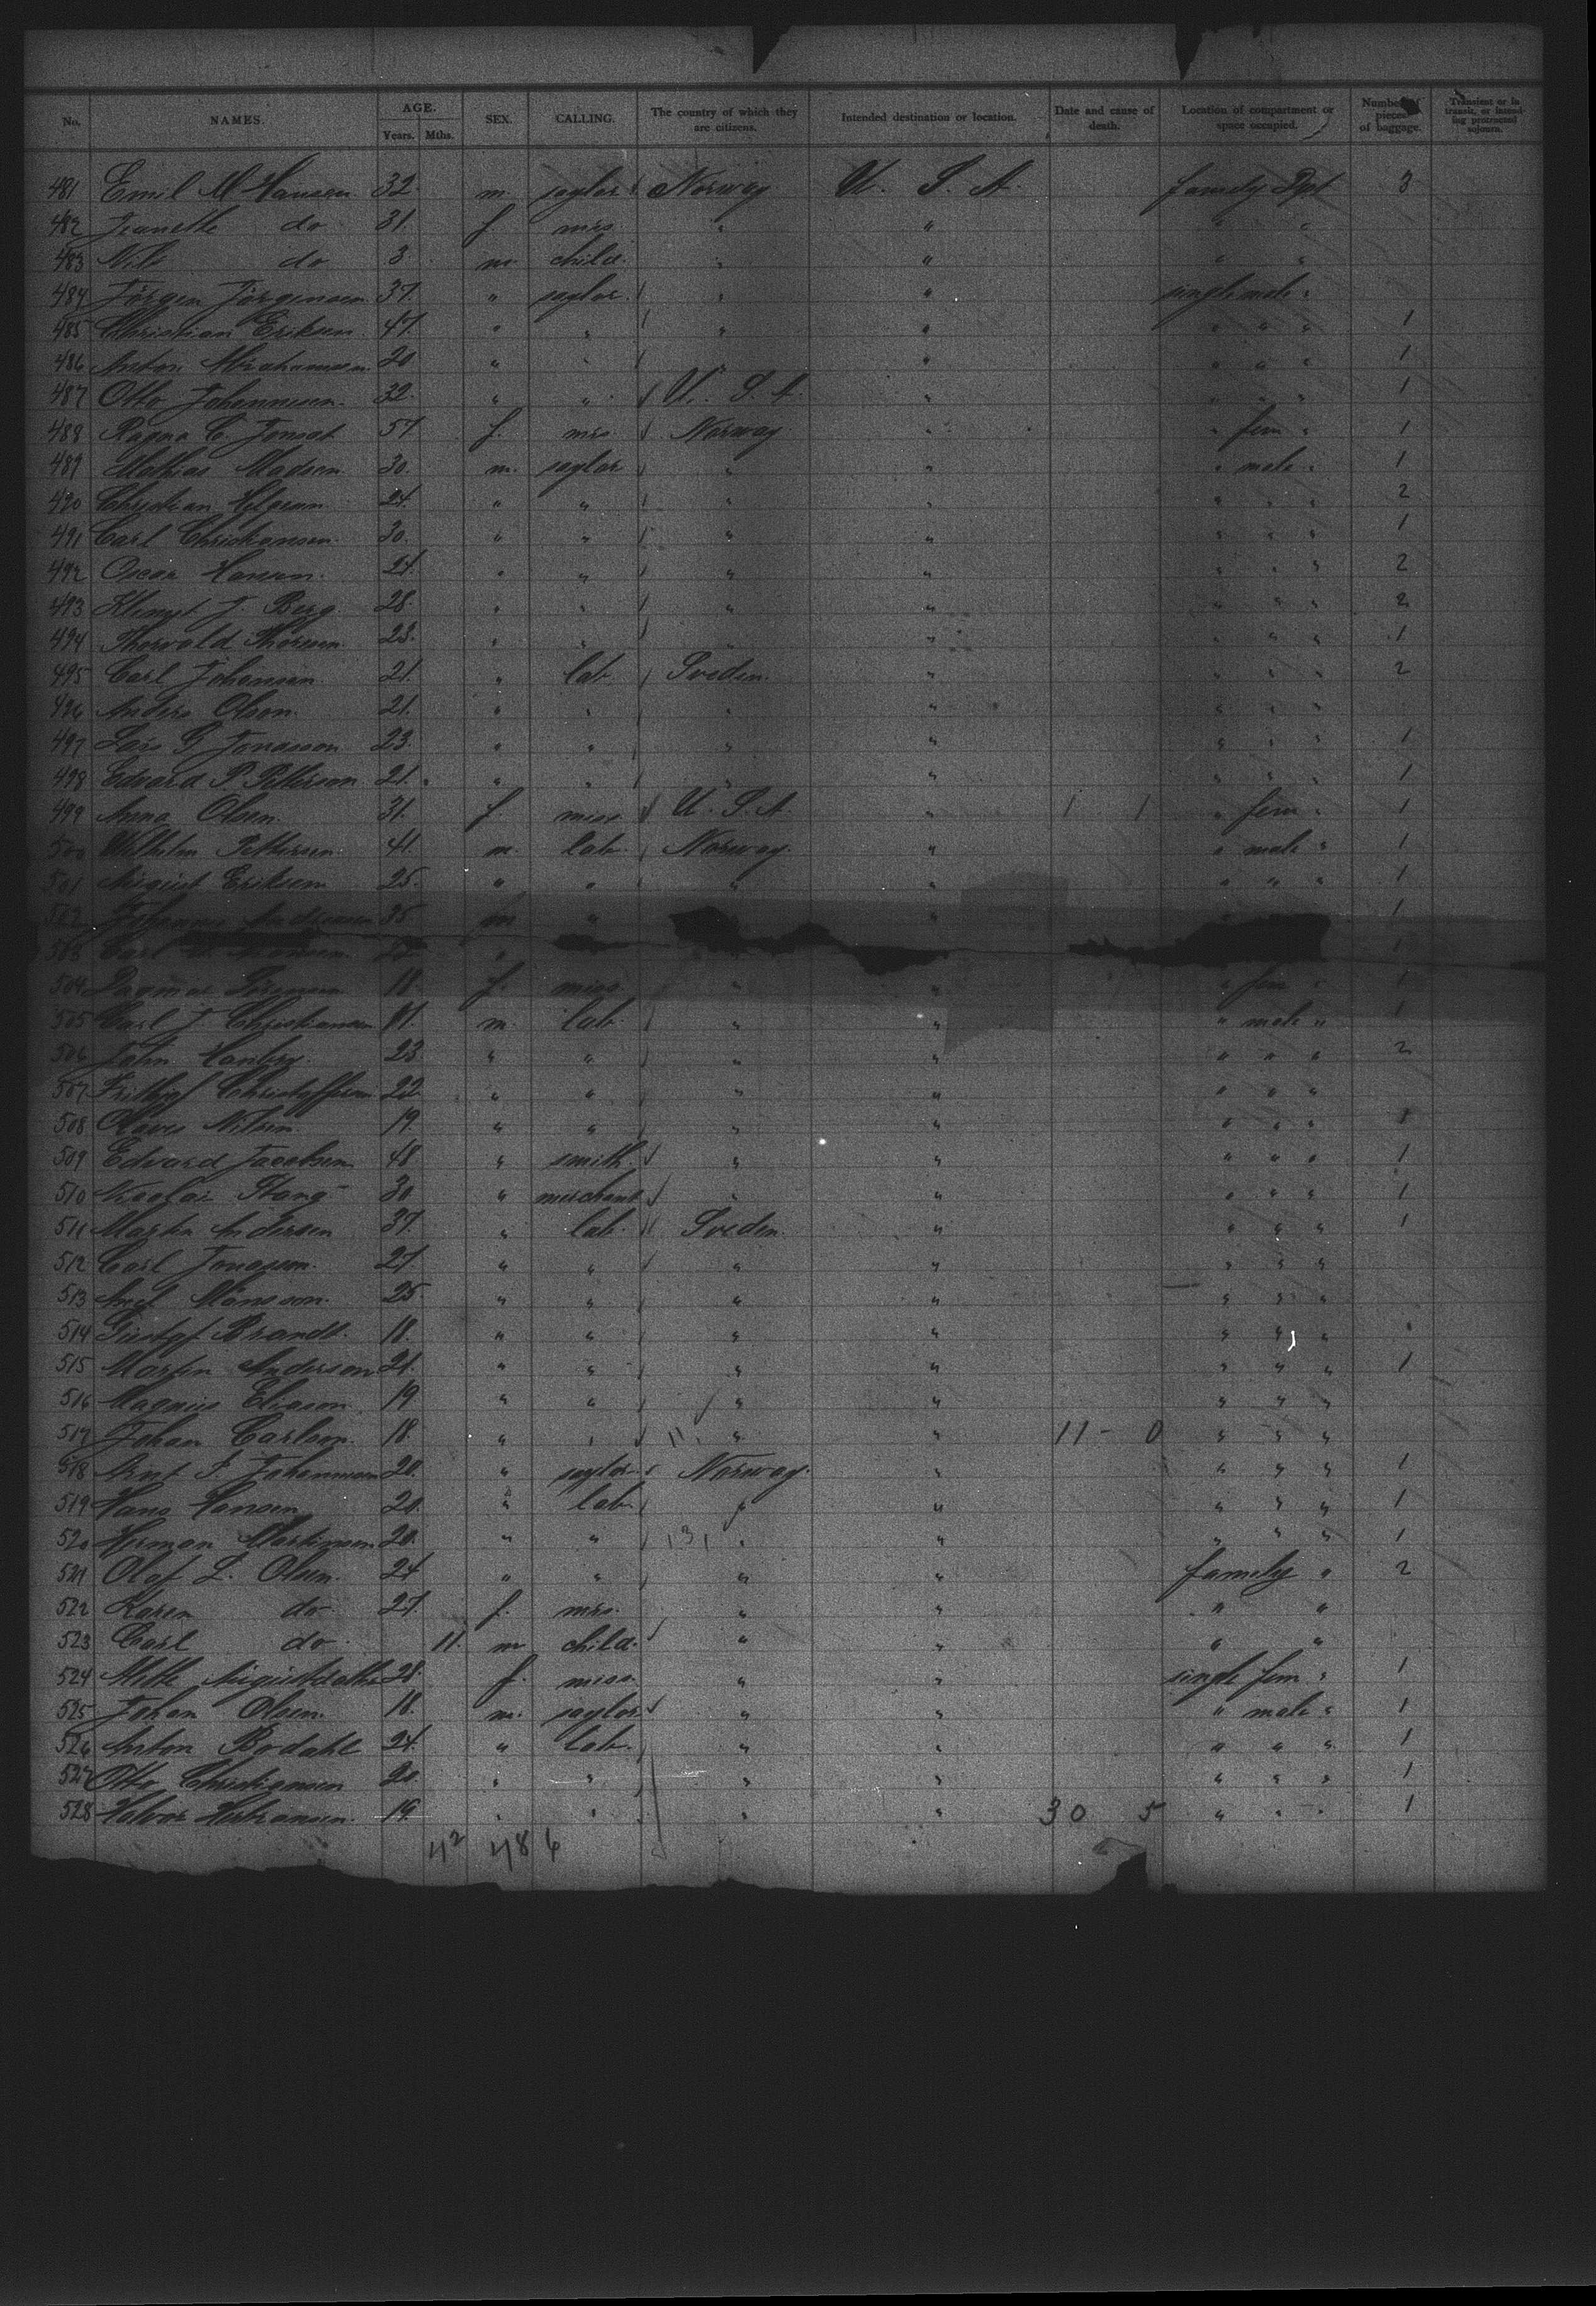 No. NAMES. AGE. Years. Mths. SEX. CALLING. The country of which they are citizens. Intended destination or location. Date and cause of death. Location of compartment or space occupied. Number of pieces of baggage. Transient or in transit, or intending protracted sojourn.
481 Emil M Hansen 32. m. saylor Norway U. S. A. family Dpt 3
482 Jeanette do 31. f mrs. " " " "
483 Nils do 3 m. child. " " " "
484 Jörgen Jörgensen 37. " saylor. " " single male "
485 Christian Eriksen 47. " " " " " " " 1
486 Anton Abrahamsen 20 " " " " " " " 1
487 Otto Johannesen. 32. " " U. S. A. " " " " 1
488 Ragna C. 57 f. mrs. Norway. " " fem " 1
489 Mathias Madsen 30. m. saylor " " " male " 1
490 Christian 24. " " " " " " " 2
491 Carl Christiansen. 30. " " " " " " " 1
492 Oscar Hansen. 21. " " " " " " " 2
493 J. Berg 28. " " " " " " " 2
494 Thorvald Thoresen 23. " " " " " " " 1
495 Carl Johansen 21. " lab. Sveden. " " " " 2
496 Anders Olson. 21. " " " " " " "
497 Lars G. Jonasson 23. " " " " " " " 1
498 Edvard P. Petterson 21. " " " " " " " 1
499 Anna Olsen. 31. f. miss U. S. A. " 1 1 " fem. " 1
500 Wilhelm Pettersen 41. m. lab. Norway. " " male " 1
501 August Eriksen 25. " " " " " " " 1
502 Johannes Andresen 35 m " " 1
503 Carl " 1
504 Dagmar 18. f. miss. " " " fem " 1
505 Carl J. Christiansen m. lab. " " " male " 1
506 John Hanberg. 23 " " " " " " " 2
507 Fridtjof Christoffersen 22. " " " " " " "
508 Olaves Nilsen. 19. " " " " " " " 1
509 Edvard Jacobsen 48 " smith. " " " " " 1
510 Nicolai Stang 30 " merchant " " " " " 1
511 Martin Andersen 37. " lab. Sveden. " " " " 1
512 Carl Jonasson. 27. " " " " " " "
513 Axel Månsson. 25. " " " " " " "
514 Gustaf Brandt. 18. " " " " " " "
515 Martin Anderson 21. " " " " " " " 1
516 Magnus Eliason. 19 " " " " " " "
517 Johan Carlson. 18. " " 11. " " 11 - 0 " " "
518 Arnt J. Johannesen 20. " saylor Norway. " " " " 1
519 Hans Hansen 20. " lab. " " " " " 1
520 Herman Martinsen 20. " " 131 " " " " " 1
521 Olaf L. Olsen. 24 " " " " family " 2
522 Karen do 27. f. mrs. " " " "
523 Carl do. 11. m child. " " " "
524 Mette Augustdatter 28. f. miss. " " single fem. " 1
525 Johan Olsen. 18. m. saylor " " " male " 1
526 Anton Bodahl 24. " lab. " " " " " 1
527 Otto Christiansen 20 " " " " " " " 1
528 Halvor 19. " " " " 30 5 " " " 1
42 48 6